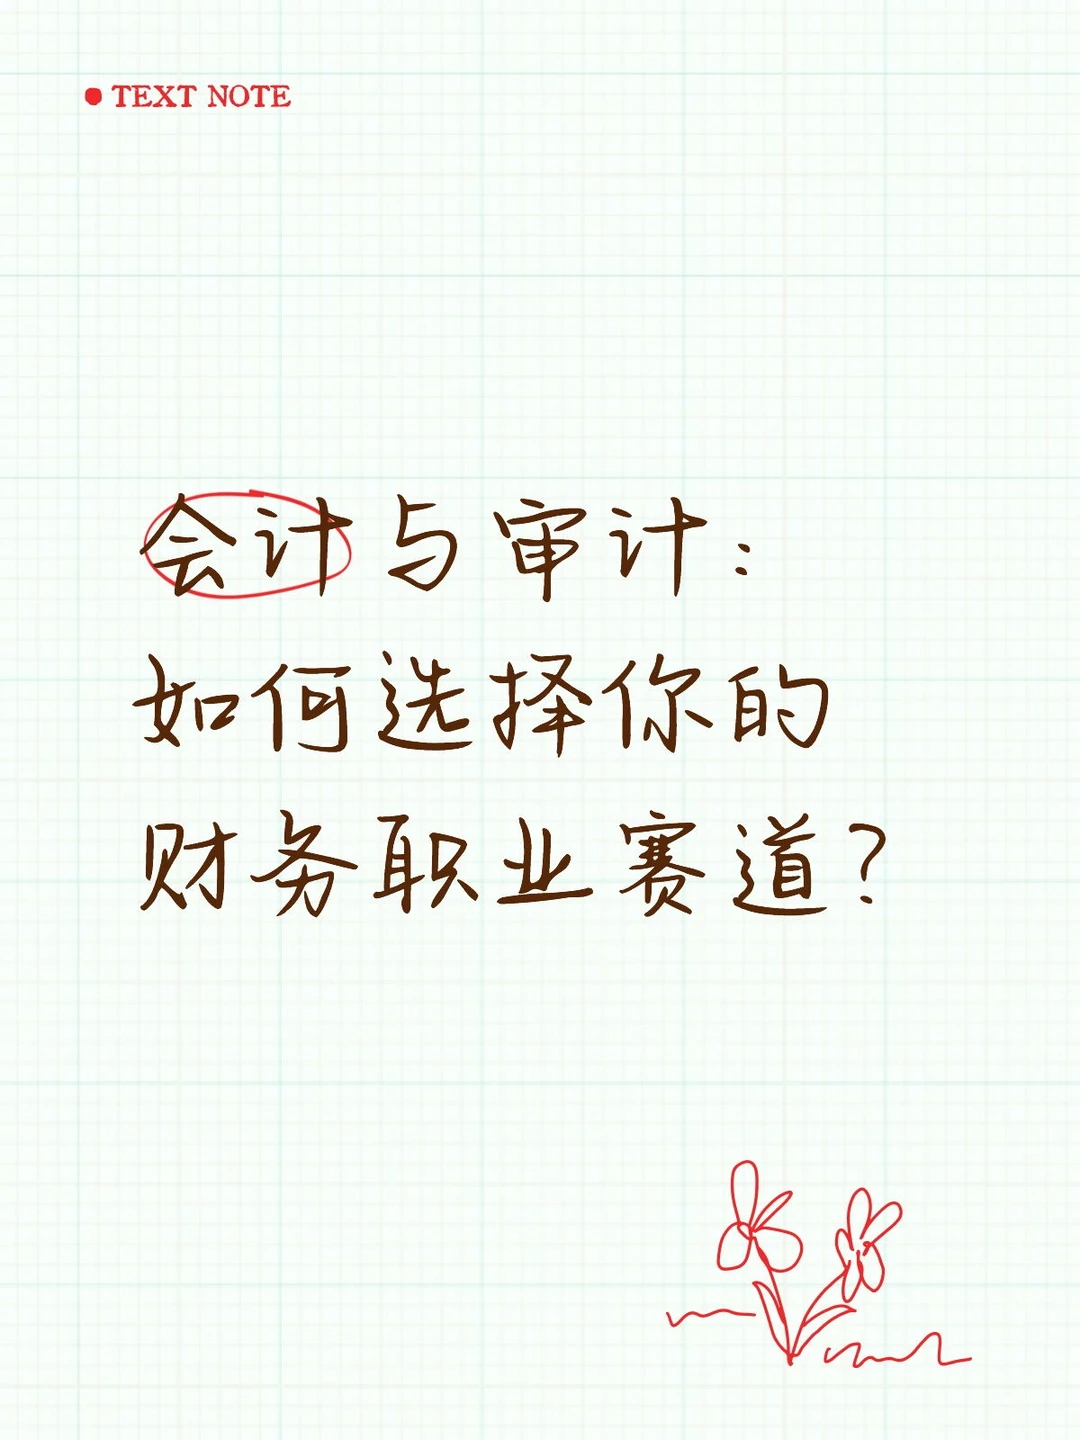 TEXT NOTE
会计与审计：
如何选择你的
财务职业赛道？